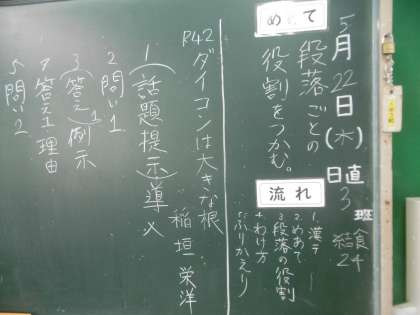 5月22日(木)
日直 3班
給食 24
めあて
段落ごとの
役割をつかむ。
流れ
1.漢テ
2.めあて
3.段落の役割
4.わけ方
5.ふりかえり
P.42 ダイコンは大きな根
稲垣 栄洋
1(話題提示)導入
2 問い1
3(答え1)例示
4 答え1・理由
5 問い2